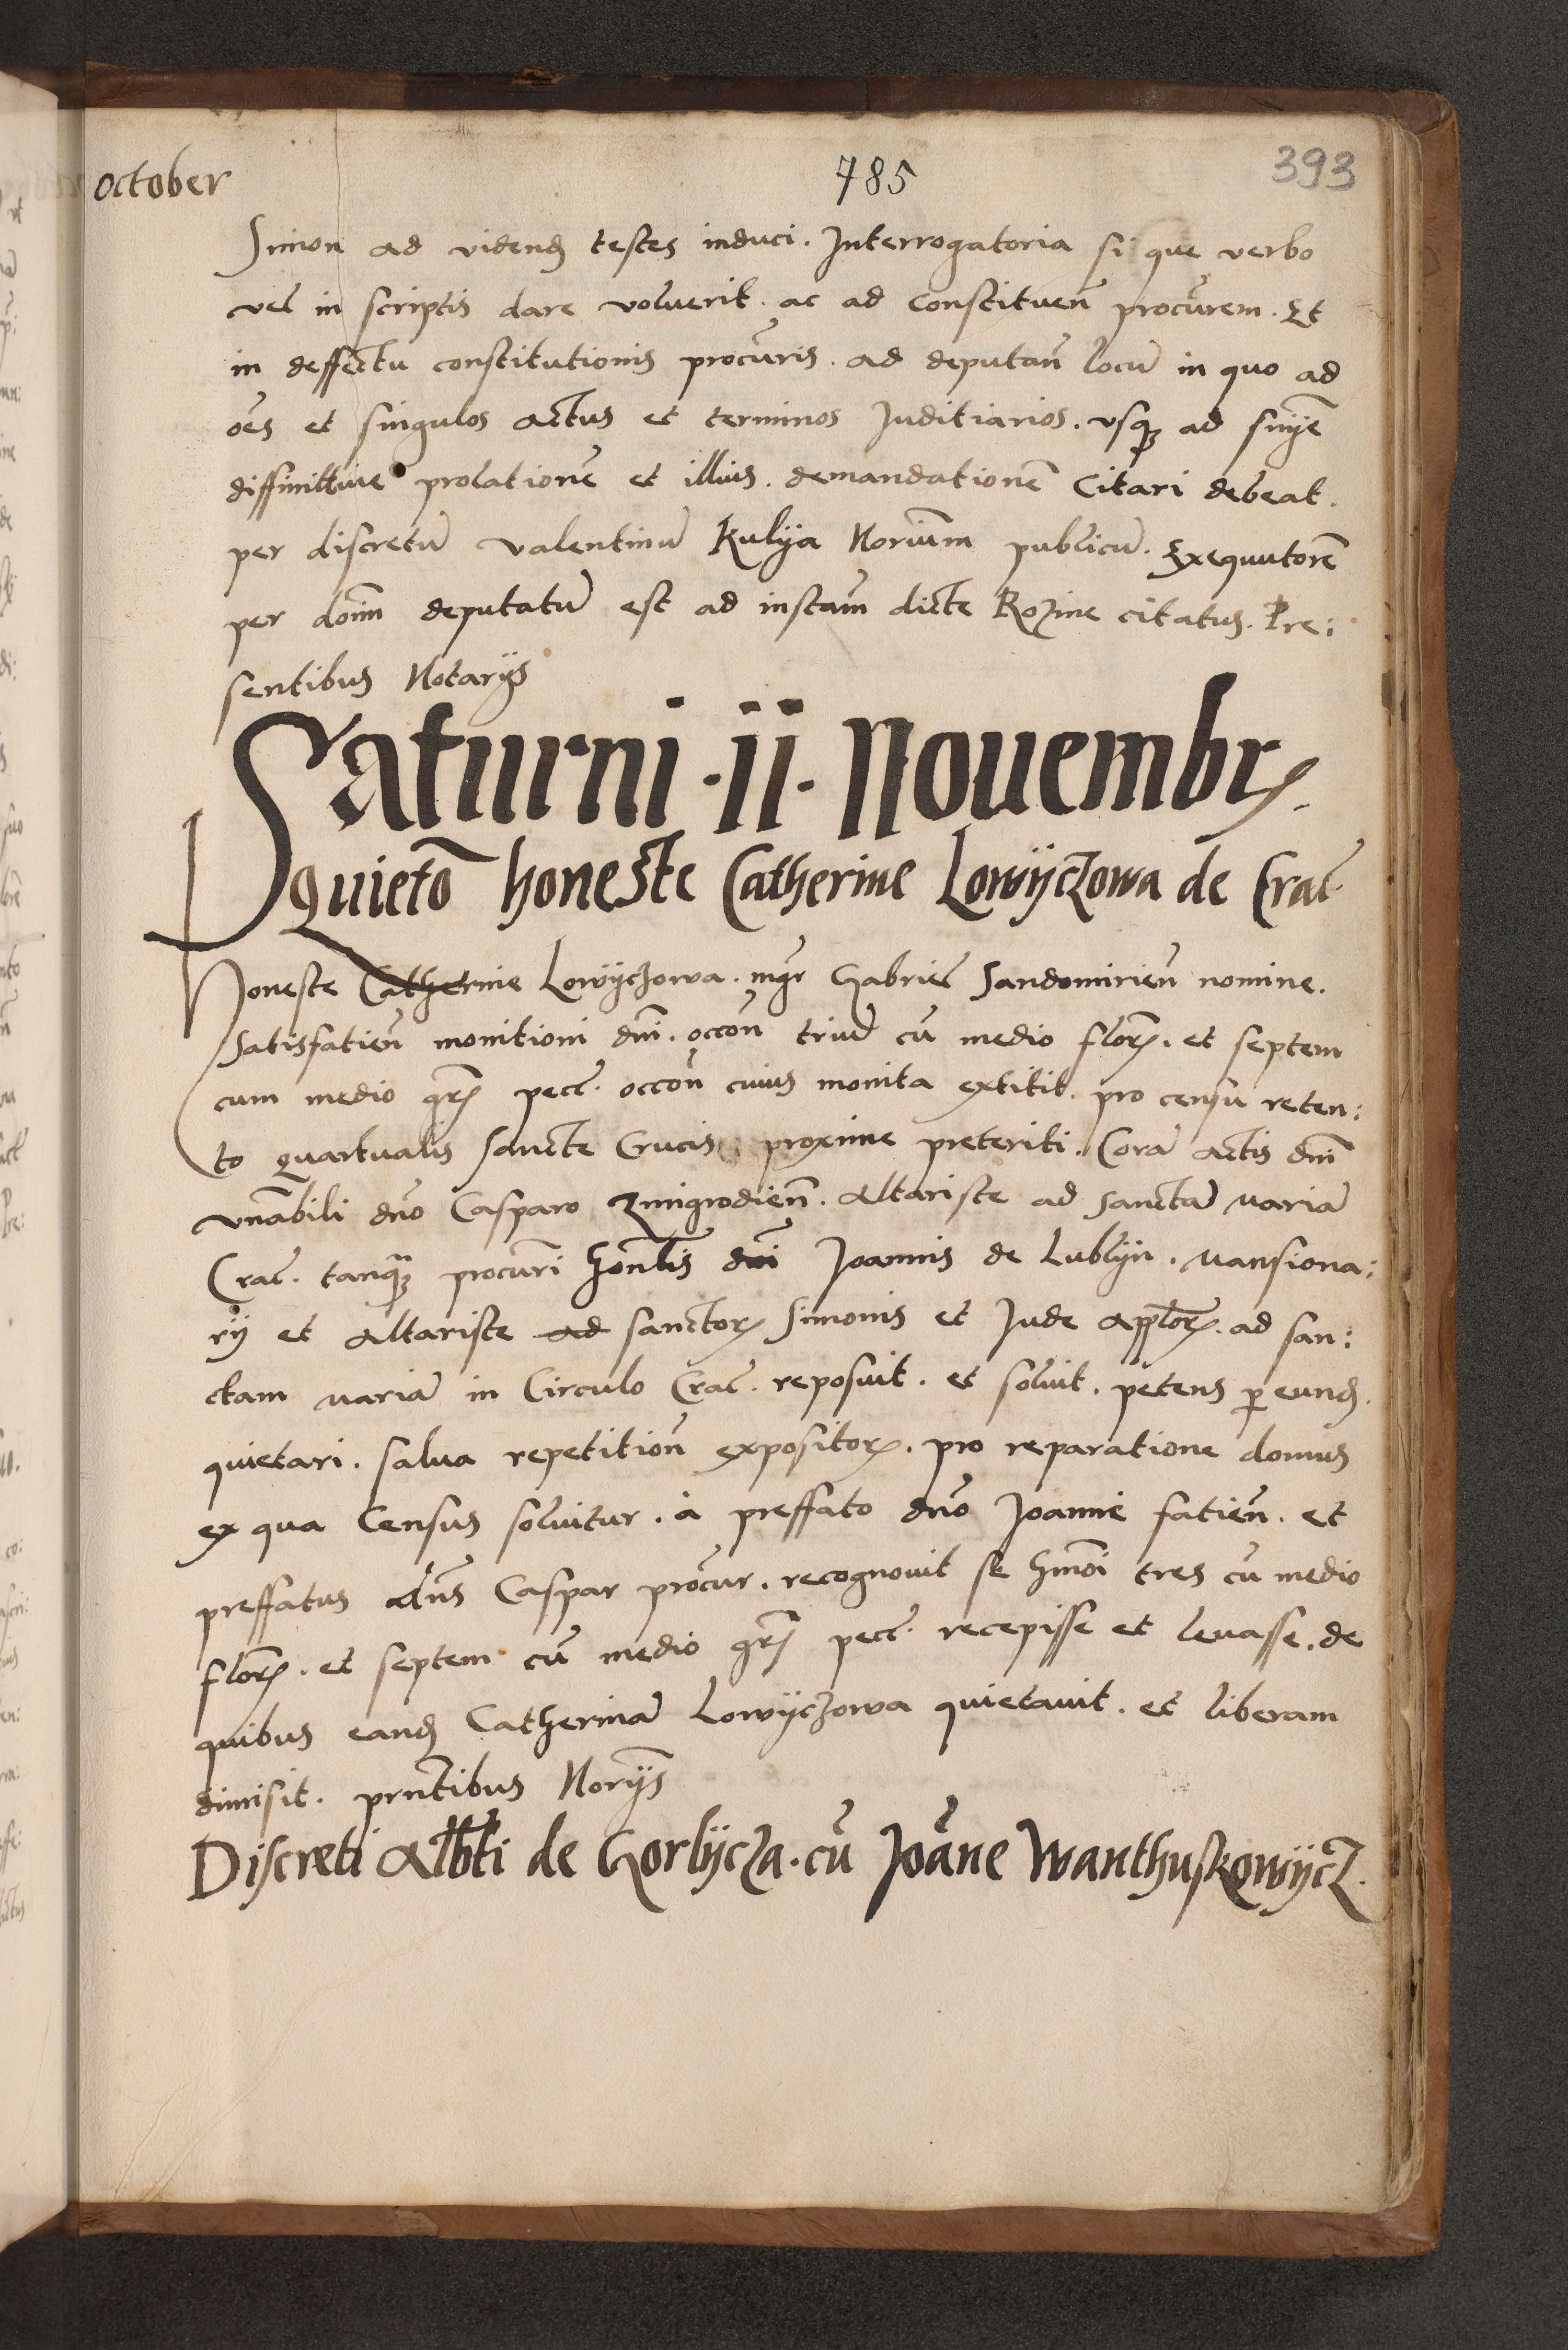 october
785
393
Simon ad videnđ testes induci. Interrogatoria si que verbo
vel in scriptis dare voluerit. ac ad constituen̄ procūrem. Et
in deffectu constitutionis procūris. ad deputan̄ locū in quo ad
oēs et singulos actus et terminos Juditiarios. usqꝫ ad sn̄ijē
diffinittiue prolationē et illius. demandationē Citari debeat.
per discretū valentinū Kulija Noriūm publicū. Exequutorē
per doīm deputatū est ad instām dicte Rozine citatus. Pre:
sentibus Notarijs
Saturni .ii. Nouembrꝭ.
Quietō honeste Catherine Lowijczowa de Crac̄
Honeste Catherine Lowijczowa. mḡr Gabriel Sandomirien̄ nomine.
Satisfatien̄ monitioni dn̄i. occōn triū cū medio florꝭ. et septem
cum medio grꝭ pecc̄. occōn cuius monita extitit. pro censu reten:
to quartualis Sancte Crucis proxime preteriti. Corā actis dn̄i
vn̄abili dn̄o Casparo Zmigrodien̄. Altariste ad Sanctā Mariā
Crac̄. tanqꝫ procūri hon̄lis dn̄i Joannis de Lublijn. Mansiona:
rij et Altariste ad sanctorꝝ Simonis et Jude apptōrꝝ. ad san:
ctam Mariā in Circulo Crac̄. reposuit. et soluit. petens ꝑ eunđ.
quietari. salua repetition̄ expositorꝝ. pro reparatione domus
ex qua Census soluitur. a preffato dn̄o Joanne fatien̄. et
preffatus dn̄s Caspar procūr. recognouit se hmōi tres cū medio
florꝭ. et septem cū medio grꝭ pecc̄. recepisse et leuasse. de
quibus eanđ Catherinā Lowijczowa quietauit. et liberam
dimisit. prn̄tibus Norijs
Discreti Albt̄i de Gorlijcza. cū Joāne Wanthuskowijcz.